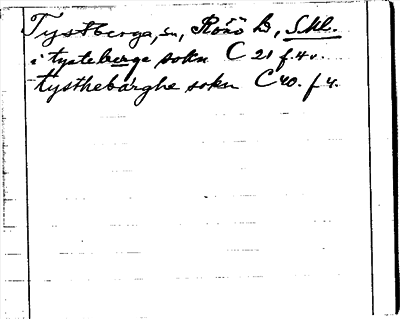 Tystberga, sn, Rönö hd, Sdl.
i tysteberge sokn C 21 f. 4 v.
tysthebärghe sokn C 40. f 4.